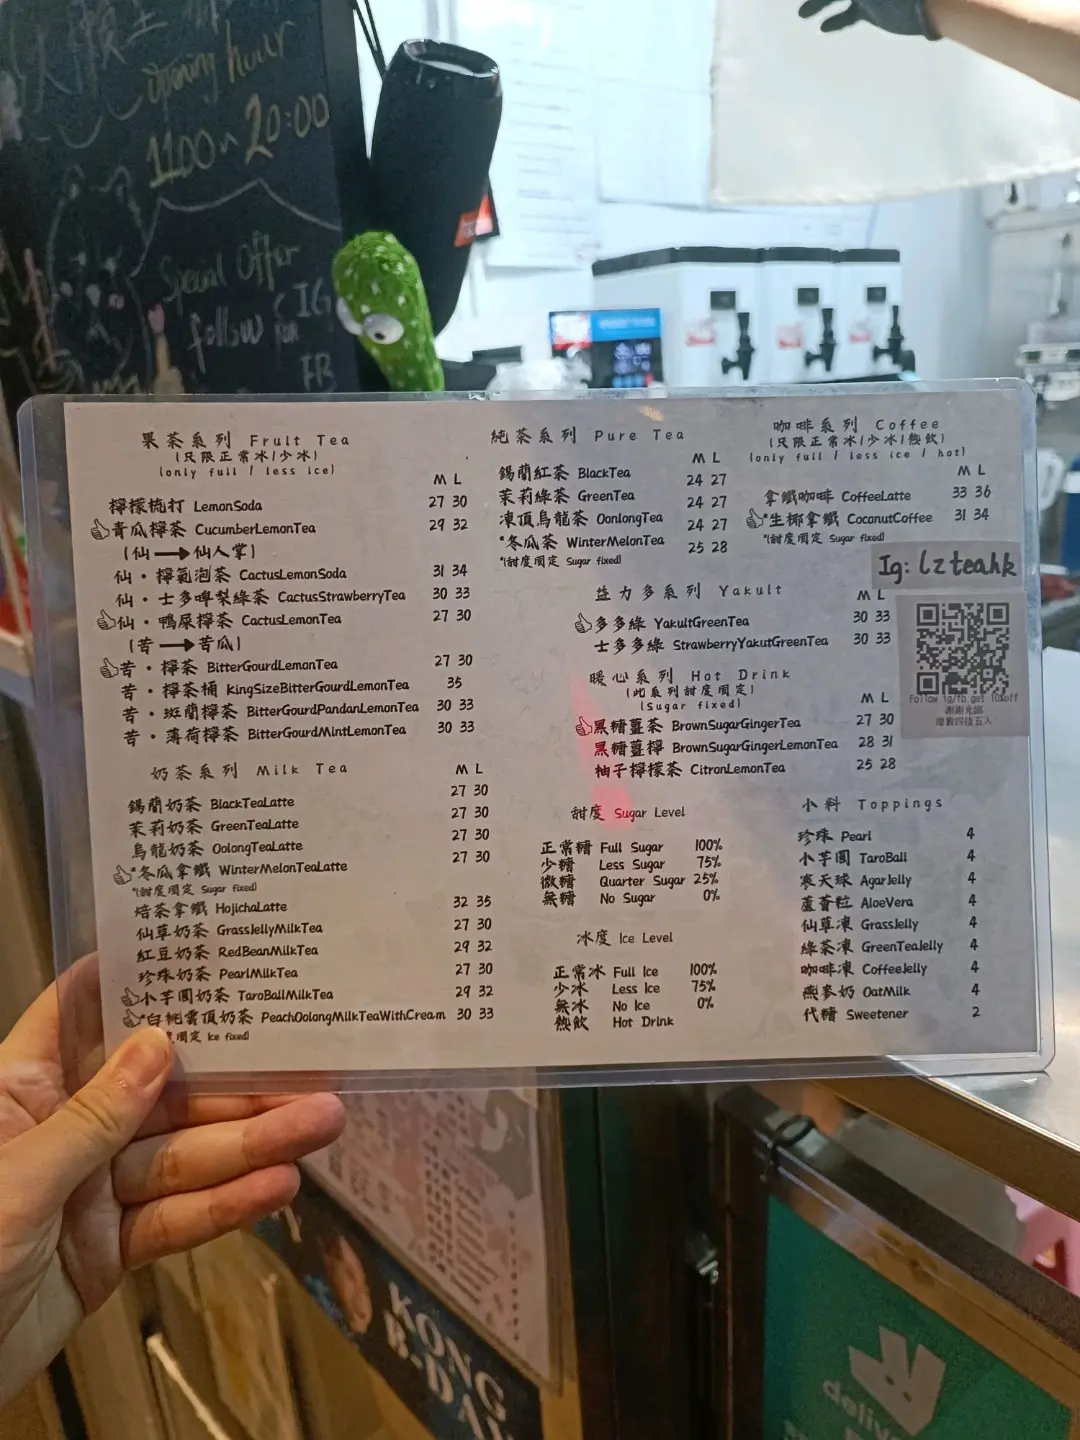 Opening hour
1100~20:00
Special Offer
follow
IG
FB
果茶系列 Fruit Tea
(只限正常冰/少冰)
(only full / less ice)
M L
檸檬梳打 LemonSoda 27 30
青瓜檸茶 CucumberLemonTea 29 32
(仙→仙人掌)
仙・檸氣泡茶 CactusLemonSoda 31 34
仙・士多啤梨綠茶 CactusStrawberryTea 30 33
仙・鴨屎檸茶 CactusLemonTea 27 30
(苦→苦瓜)
苦・檸茶 BitterGourdLemonTea 27 30
苦・檸茶桶 KingSizeBitterGourdLemonTea 35
苦・斑蘭檸茶 BitterGourdPandanLemonTea 30 33
苦・薄荷檸茶 BitterGourdMintLemonTea 30 33
奶茶系列 Milk Tea
M L
錫蘭奶茶 BlackTeaLatte 27 30
茉莉奶茶 GreenTeaLatte 27 30
烏龍奶茶 OolongTeaLatte 27 30
*冬瓜拿鐵 WinterMelonTeaLatte 27 30
*(甜度固定 Sugar fixed)
焙茶拿鐵 HojichaLatte 32 35
仙草奶茶 GrassJellyMilkTea 27 30
紅豆奶茶 RedBeanMilkTea 29 32
珍珠奶茶 PearlMilkTea 27 30
小芋圓奶茶 TaroBallMilkTea 29 32
*白桃雲頂奶茶 PeachOolongMilkTeaWithCream 30 33
度固定 Ice fixed)
純茶系列 Pure Tea
M L
錫蘭紅茶 BlackTea 24 27
茉莉綠茶 GreenTea 24 27
凍頂烏龍茶 OonlongTea 24 27
*冬瓜茶 WinterMelonTea 25 28
*(甜度固定 Sugar fixed)
益力多系列 Yakult
M L
多多綠 YakultGreenTea 30 33
士多多綠 StrawberryYakutGreenTea 30 33
暖心系列 Hot Drink
(此系列甜度固定)
(Sugar fixed)
M L
黑糖薑茶 BrownSugarGingerTea 27 30
黑糖薑檸 BrownSugarGingerLemonTea 28 31
柚子檸檬茶 CitronLemonTea 25 28
甜度 Sugar Level
正常糖 Full Sugar 100%
少糖 Less Sugar 75%
微糖 Quarter Sugar 25%
無糖 No Sugar 0%
冰度 Ice Level
正常冰 Full Ice 100%
少冰 Less Ice 75%
無冰 No Ice 0%
熱飲 Hot Drink
咖啡系列 Coffee
(只限正常冰/少冰/熱飲)
(only full / less ice / hot)
M L
拿鐵咖啡 CoffeeLatte 33 36
*生椰拿鐵 CoconutCoffee 31 34
*(甜度固定 Sugar fixed)
Ig: lzteahk
Follow ig/fb get 10%off
謝謝光臨
小料 Toppings
珍珠 Pearl 4
小芋圓 TaroBall 4
寒天球 AgarJelly 4
蘆薈粒 AloeVera 4
仙草凍 GrassJelly 4
綠茶凍 GreenTeaJelly 4
咖啡凍 CoffeeJelly 4
燕麥奶 OatMilk 4
代糖 Sweetener 2
KONG
B-DAY